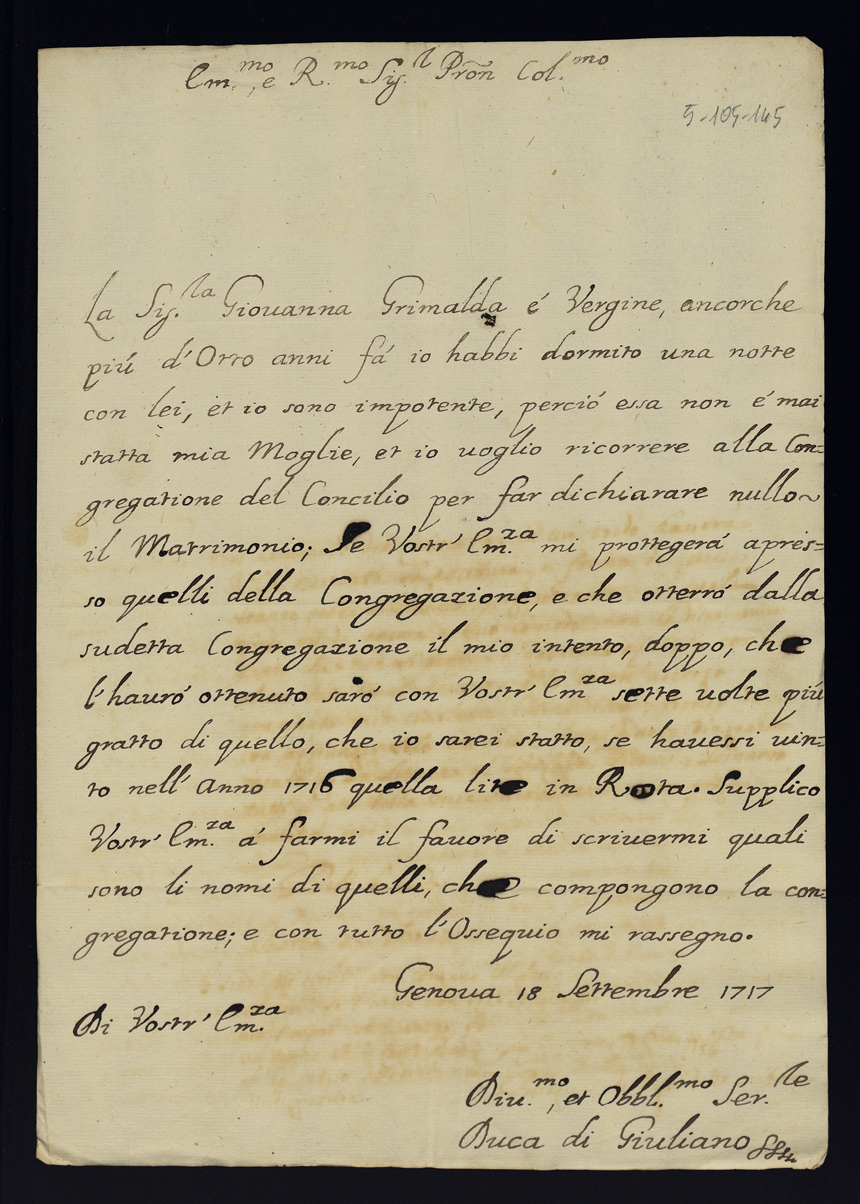 Em.mo, e R.mo Sig.r Pron Col.mo
5-105-145
La Sig.la Giouanna Grimalda é Vergine, ancorche
piú d'Otto anni fá io habbi dormito una notte
con lei, et io sono impotente, perció essa non é mai
statta mia Moglie, et io uoglio ricorrere alla Con=
gregatione del Concilio per far dichiarare nullo
il Matrimonio; Se Vostr' Em.za mi prottegerá apres=
so quelli della Congregazione, e che otterró dalla
sudetta Congregazione il mio intento, doppo, che
l'hauró ottenuto saró con Vostr' Em.za sette uolte piú
gratto di quello, che io sarei statto, se hauessi uin=
to nell' Anno 1716 quella lite in Rota. Supplico
Vostr' Em.za á farmi il fauore di scriuermi quali
sono li nomi di quelli, che compongono la con=
gregatione; e con tutto l'Ossequio mi rassegno.
Genoua 18 Settembre 1717
Di Vostr' Em.za
Diu.mo, et Obbl.mo Ser.le
Duca di Giuliano